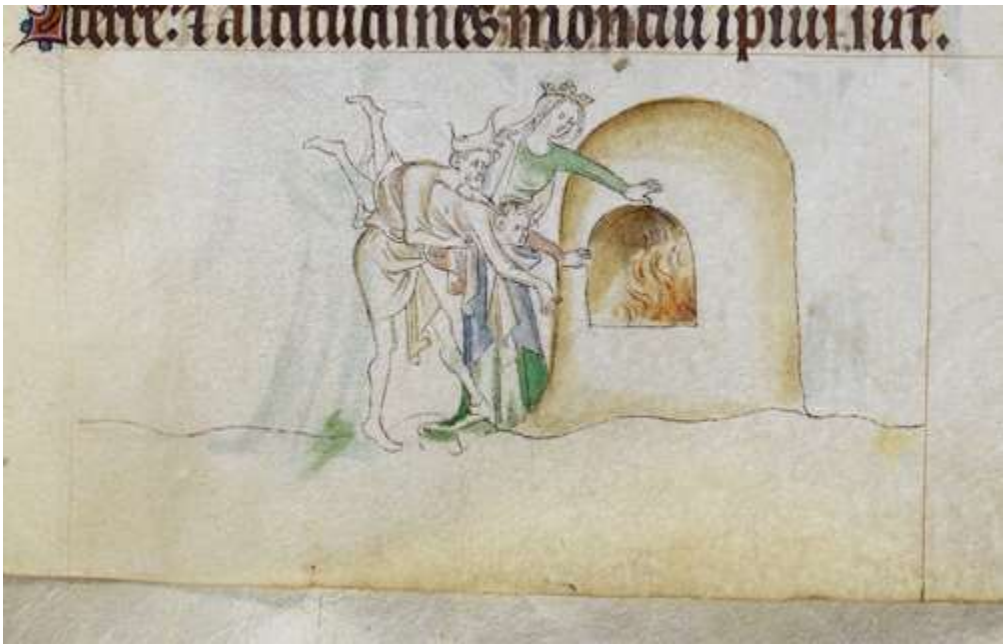 terre: ⁊ altitudines montiu ipius sut.